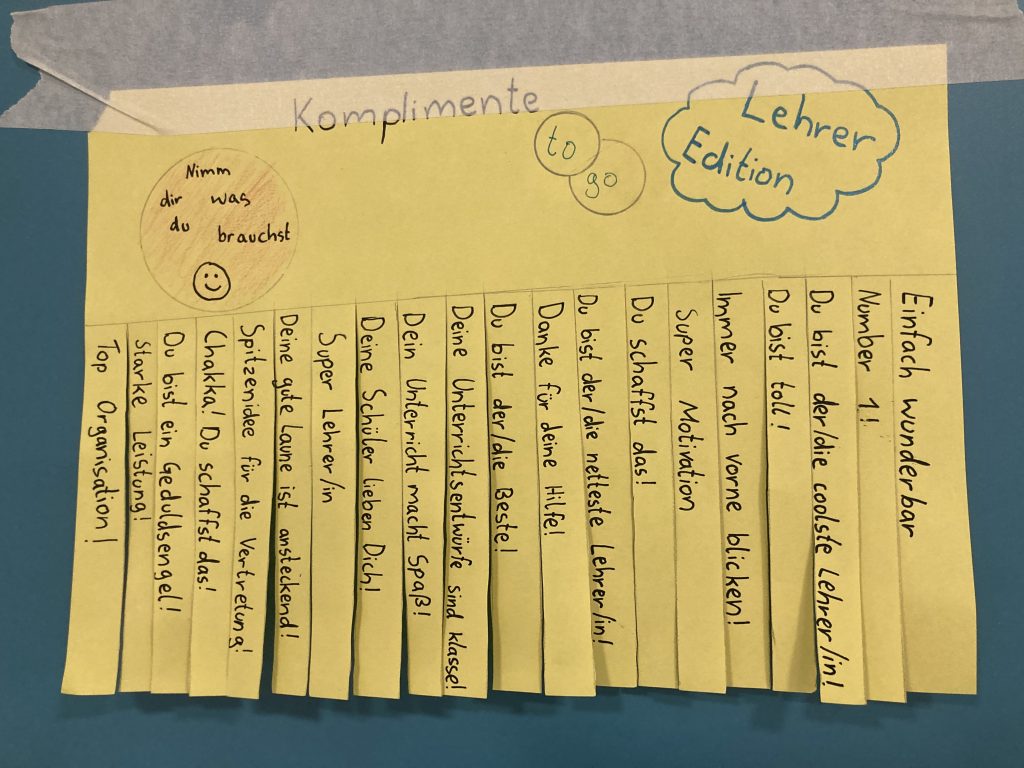 Komplimente
to
go
Lehrer
Edition
Nimm
dir was
du brauchst
Top Organisation!
starke Leistung!
Du bist ein Geduldsengel!
Chakka! Du schaffst das!
Spitzenidee für die Vertretung!
Deine gute Laune ist ansteckend!
Super Lehrer/in
Deine Schüler lieben Dich!
Dein Unterricht macht Spaß!
Deine Unterrichtsentwürfe sind klasse!
Du bist der/die Beste!
Danke für deine Hilfe!
Du bist der/die netteste Lehrer/in!
Du schaffst das!
Super Motivation
Immer nach vorne blicken!
Du bist toll!
Du bist der/die coolste Lehrer/in!
Number 1!
Einfach wunderbar